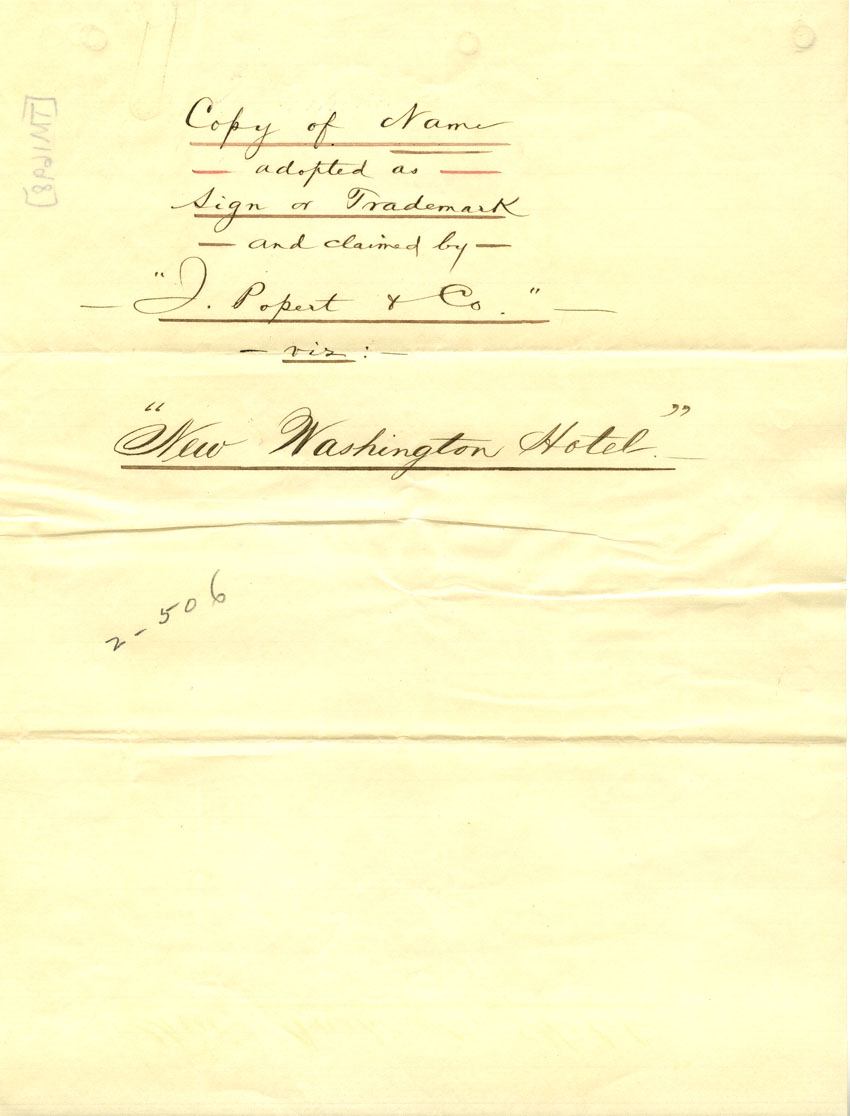 Copy of Name
— adopted as —
Sign or Trademark
— and claimed by —
— "J. Popert & Co." —
— viz: —
"New Washington Hotel."
2-506